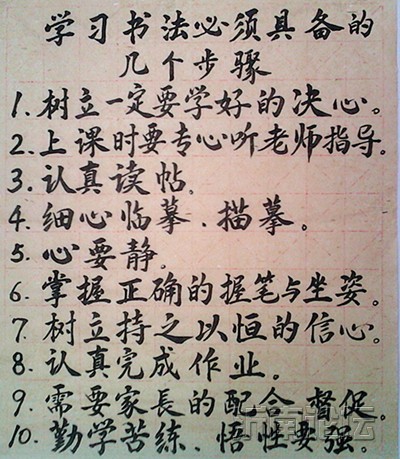 学习书法必须具备的
几个步骤
1.树立一定要学好的决心。
2.上课时要专心听老师指导。
3.认真读帖。
4.细心临摹、描摹。
5.心要静。
6.掌握正确的握笔与坐姿。
7.树立持之以恒的信心。
8.认真完成作业。
9.需要家長的配合、督促。
10.勤学苦练、悟性要强。